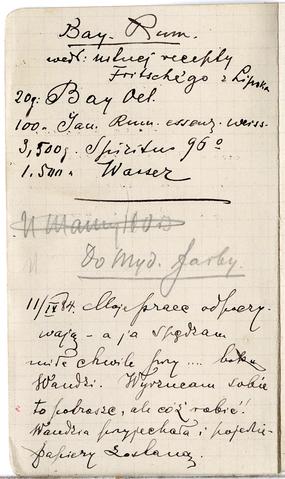 Bay. Rum.
wedł: silnej recepty
Fritschégo z Lipska
20g: Bay Oel.
100. Jam. Rum. essenz. weiss.
3,500g. Spiritus 96°
1,500 Wasser
Do Myd. farby.
11/IV 84. Moje prace odpoczy-
wają - a ja spędzam
miłe chwile przy .... boku
Wandzi. Wyrzucam sobie
to potrosze, ale cóż robić!
Wandzia przyjechała i pojedzie-
papiery zostaną.